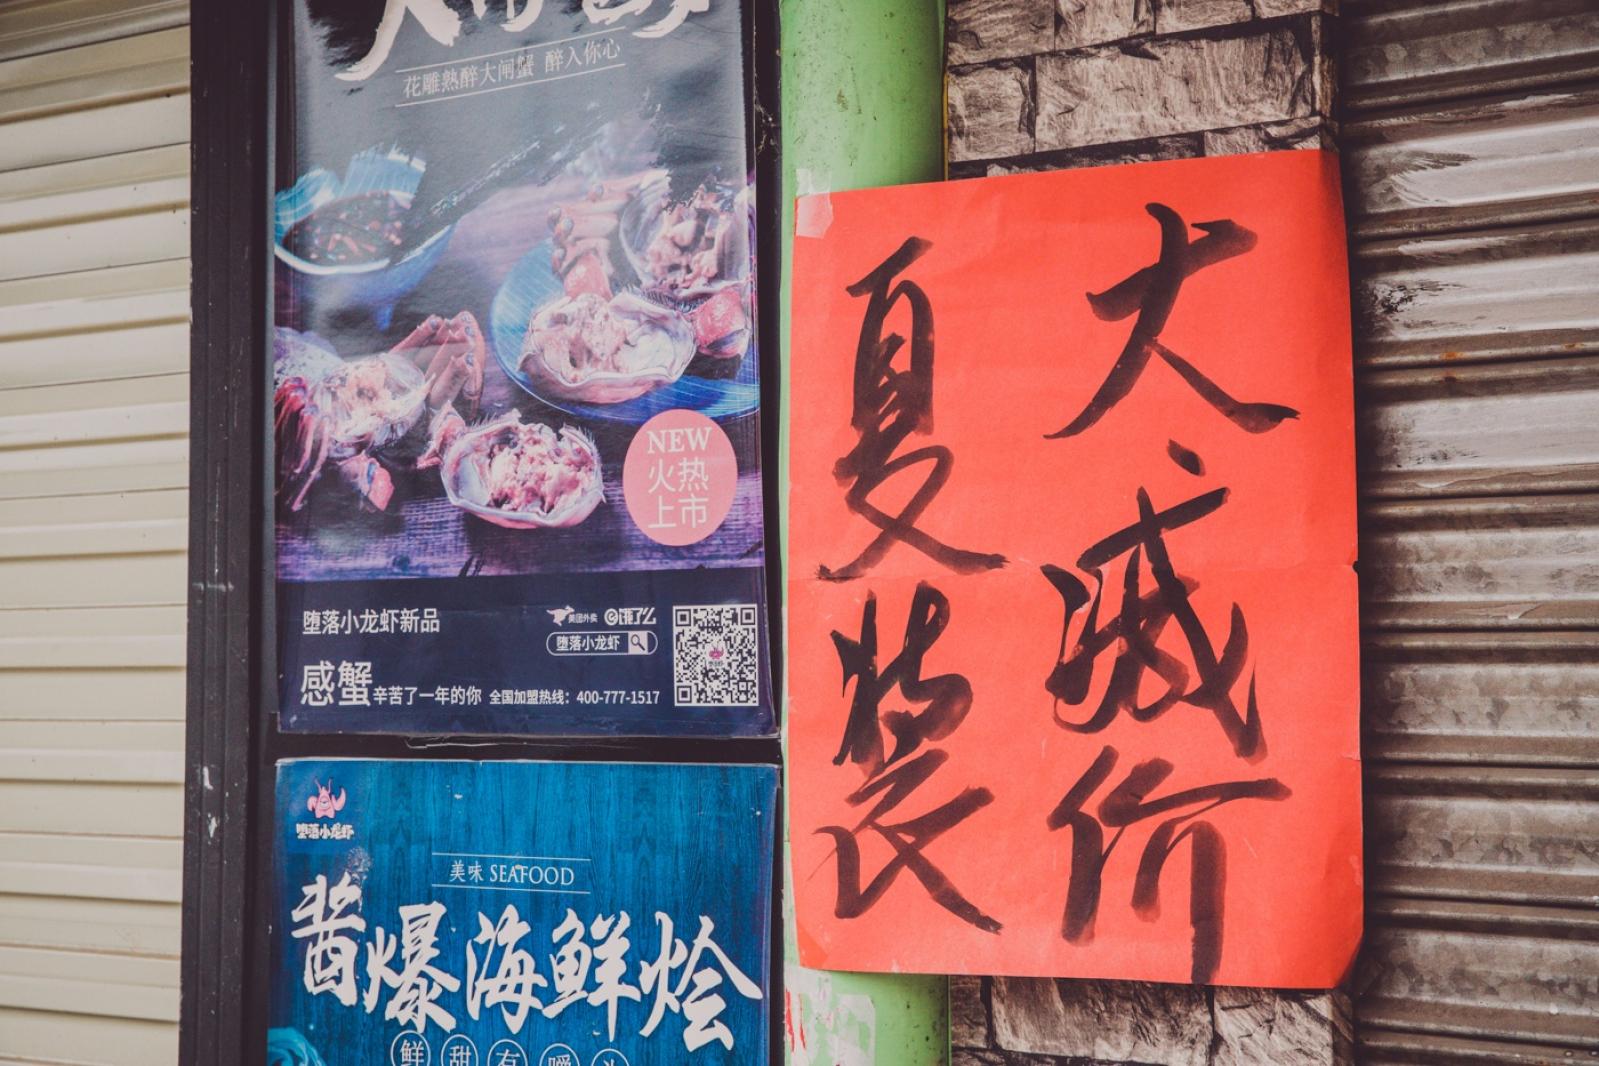 花雕熟醉大闸蟹 醉入你心
NEW
火热
上市
堕落小龙虾新品
美团外卖 饿了么
堕落小龙虾
感蟹辛苦了一年的你 全国加盟热线：400-777-1517
堕落小龙虾
美味 SEAFOOD
酱爆海鲜烩
鲜甜有嚼头
大减价
夏装